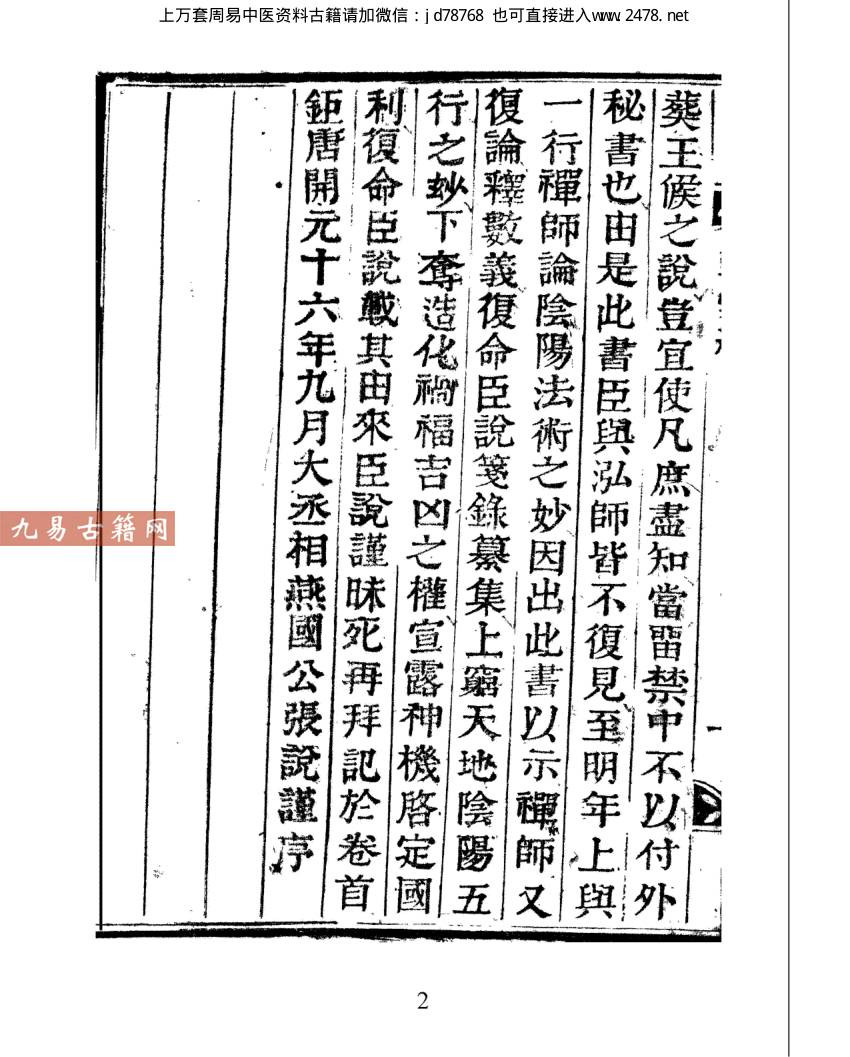 上万套周易中医资料古籍请加微信：jd78768 也可直接进入www.2478.net
葬王侯之說豈宜使凡庶盡知當畱禁中不以付外
秘書也由是此書臣與泓師皆不復見至明年上與
一行禪師論陰陽法術之妙因出此書以示禪師又
復論釋數義復命臣說箋錄纂集上窮天地陰陽五
行之玅下奪造化禍福吉凶之權宣露神機啓定國
利復命臣說載其由來臣說謹昧死再拜記於卷首
鉅唐開元十六年九月大丞相燕國公張說謹序
九易古籍网
2